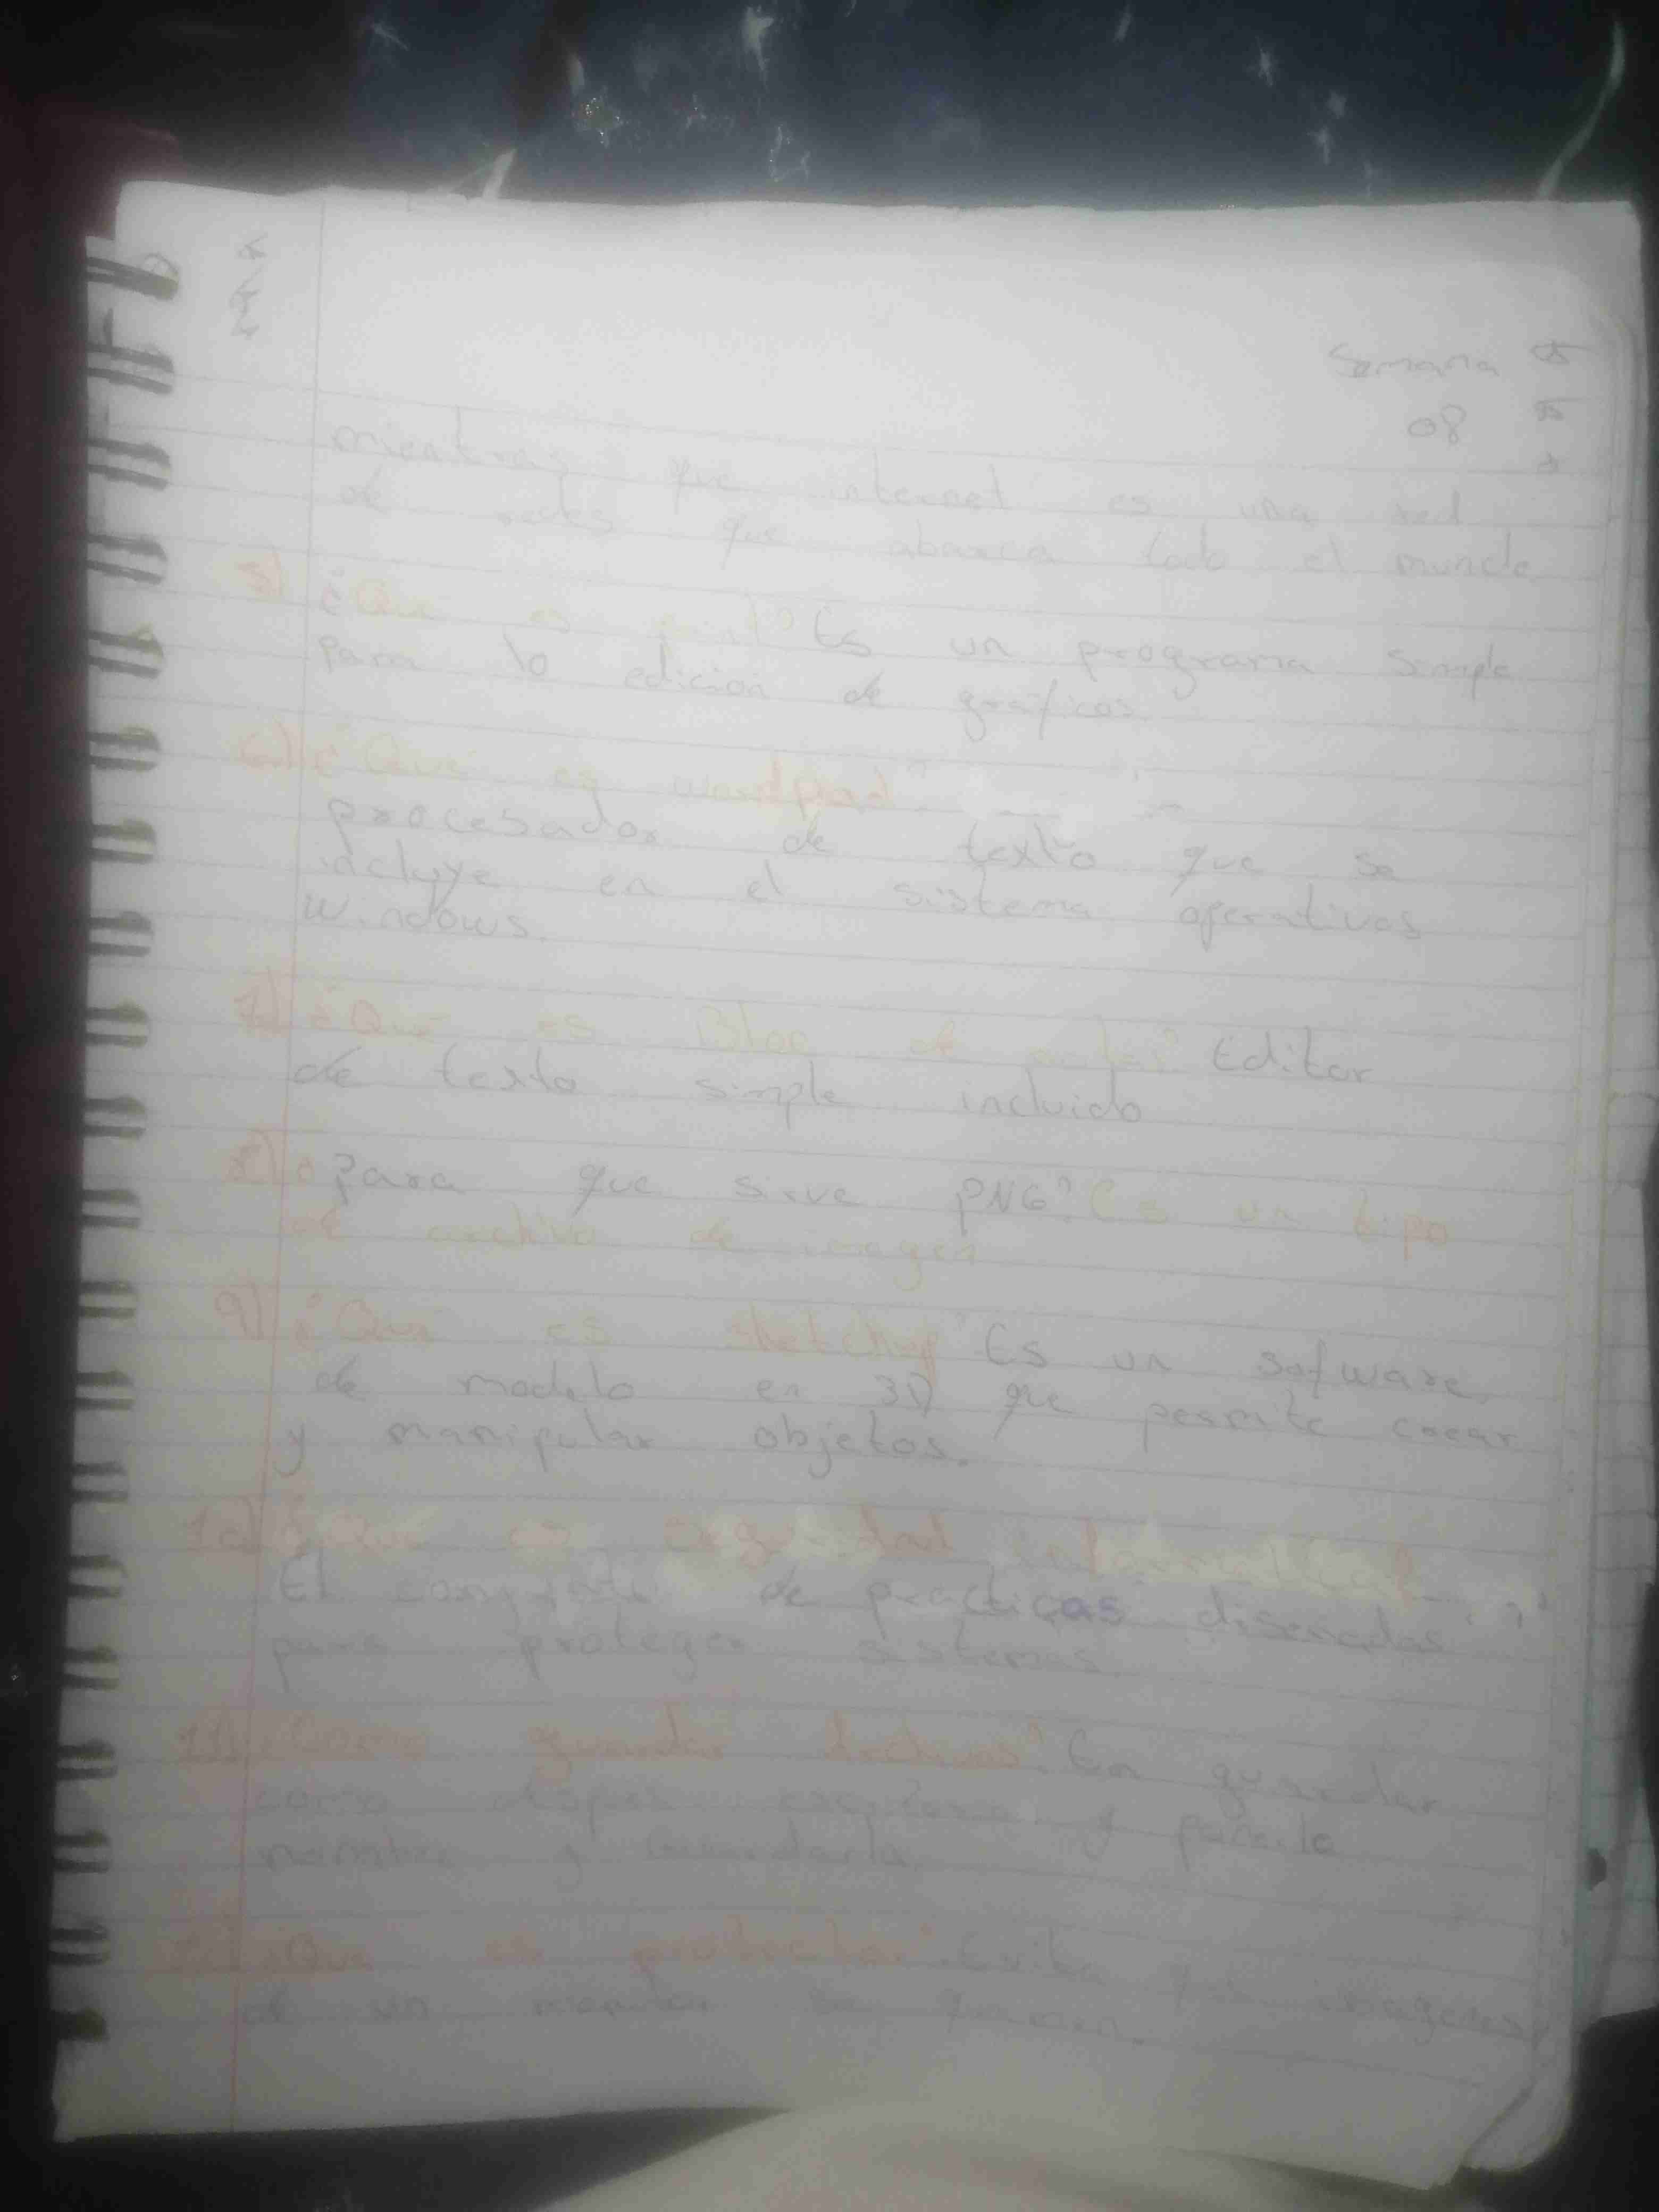 Semana
08
mientras que internet es una red
de redes que abarca todo el mundo
5) ¿Que es paint? Es un programa simple
para lo edicion de gráficos
6) ¿Que es wordpad?
procesador de texto que se
incluye en el sistema operativos
Windows.
7) ¿Que es Bloc de notas? Editor
de texto simple incluido
8) ¿Para que sirve PNG? Es un tipo
de archivo de imagen
9) ¿Que es sketchup? Es un sofware
de modelo en 3D que permite crear
y manipular objetos.
10) ¿Que es seguridad informatica?
El conjunto de practicas diseñadas
para proteger sistemas.
11) ¿Como guardar archivos? En guardar
como y ponerle
nombre y guardarla
¿Que es protector? Evita que imagenes
de un monitor se quemen.